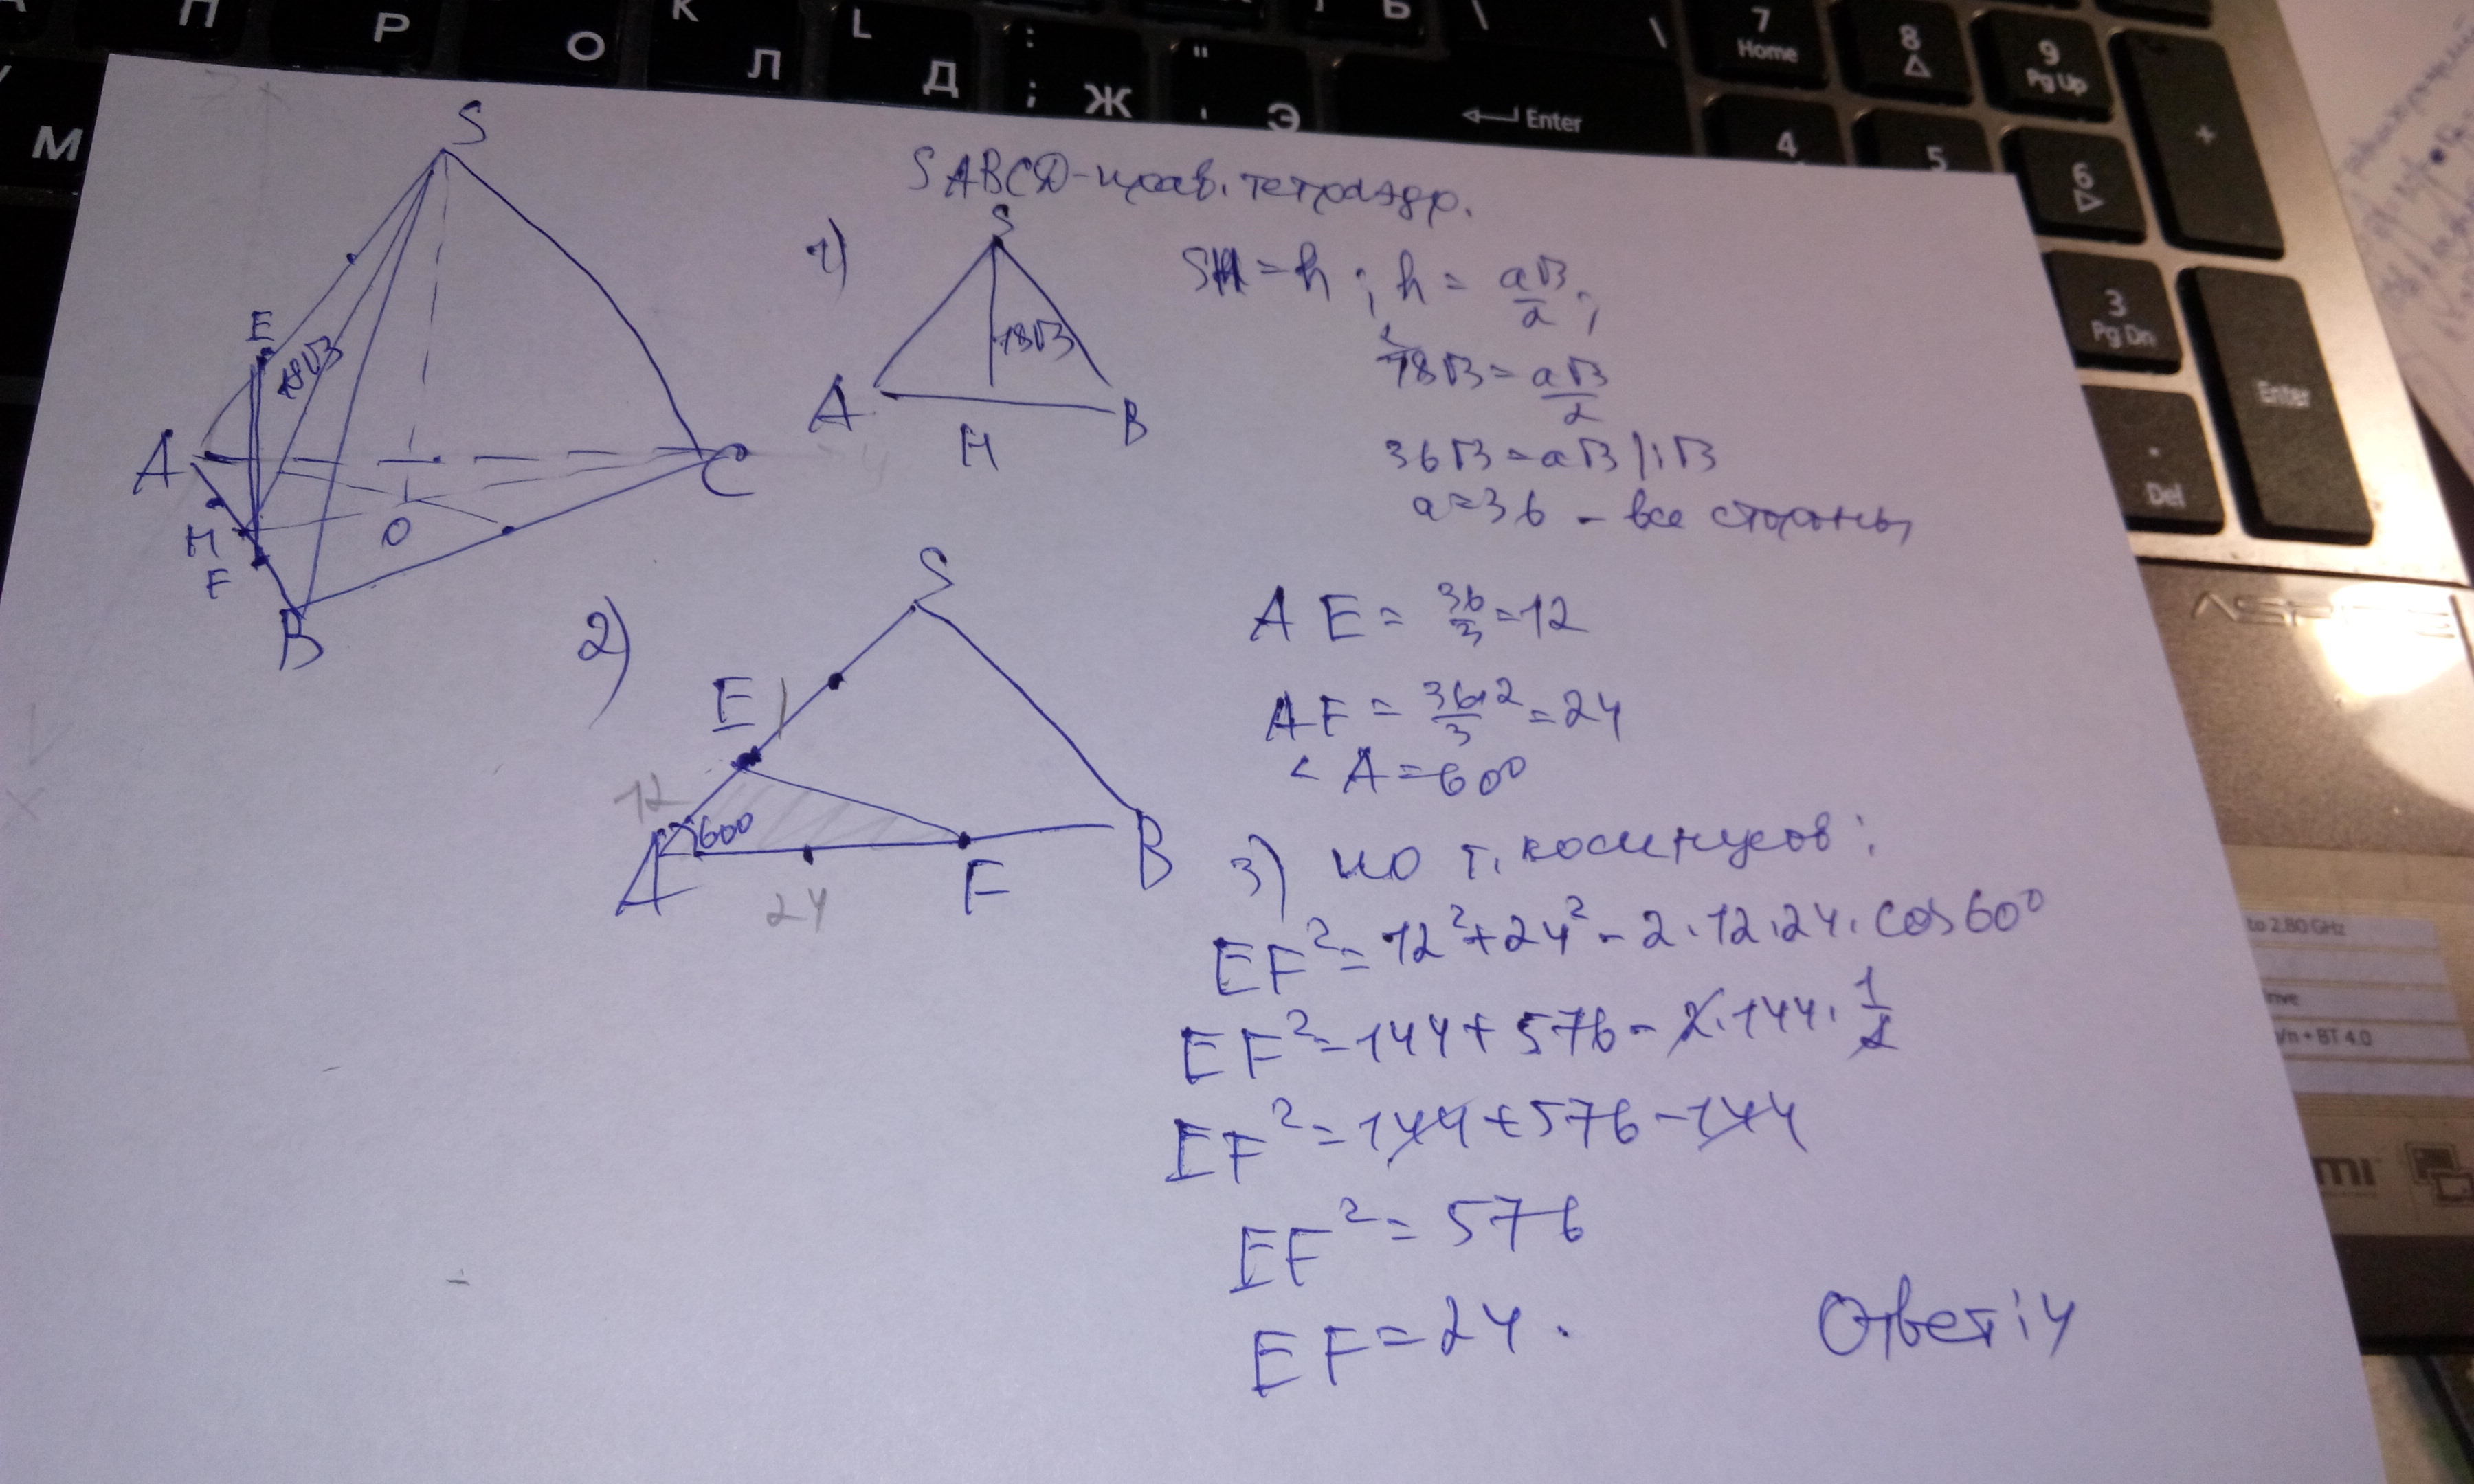 П Р О К Л L Д : ; Ж " ' Э \ \ Ь
М
← Enter
7 Home 8 9 Pg Up +
4 5 6
3 Pg Dn
. Del
Enter
S
E
18√3
A
C
H
O
F
B
SABCD - прав. тетраэдр.
1)
S
18√3
A
H
B
SH = h ; h = a√3/2 ;
18√3 = a√3/2
36√3 = a√3 |:√3
a = 36 - все стороны
2)
S
E
12
60°
A
24
F
B
AE = 36/3 = 12
AF = 36·2/3 = 24
< A = 60°
3) по т. косинусов :
EF² = 12² + 24² - 2·12·24·cos 60°
EF² = 144 + 576 - 2·144·1/2
EF² = 144 + 576 - 144
EF² = 576
EF = 24.
Ответ: 4
to 2.80 GHz
/n + BT 4.0